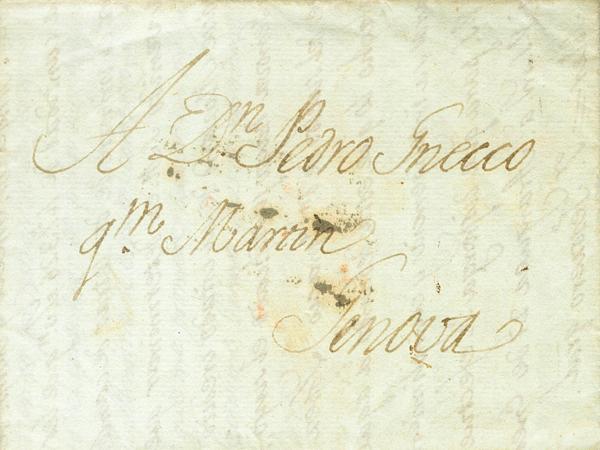 A Dn Pedro Gnecco
qm Martin
Genova